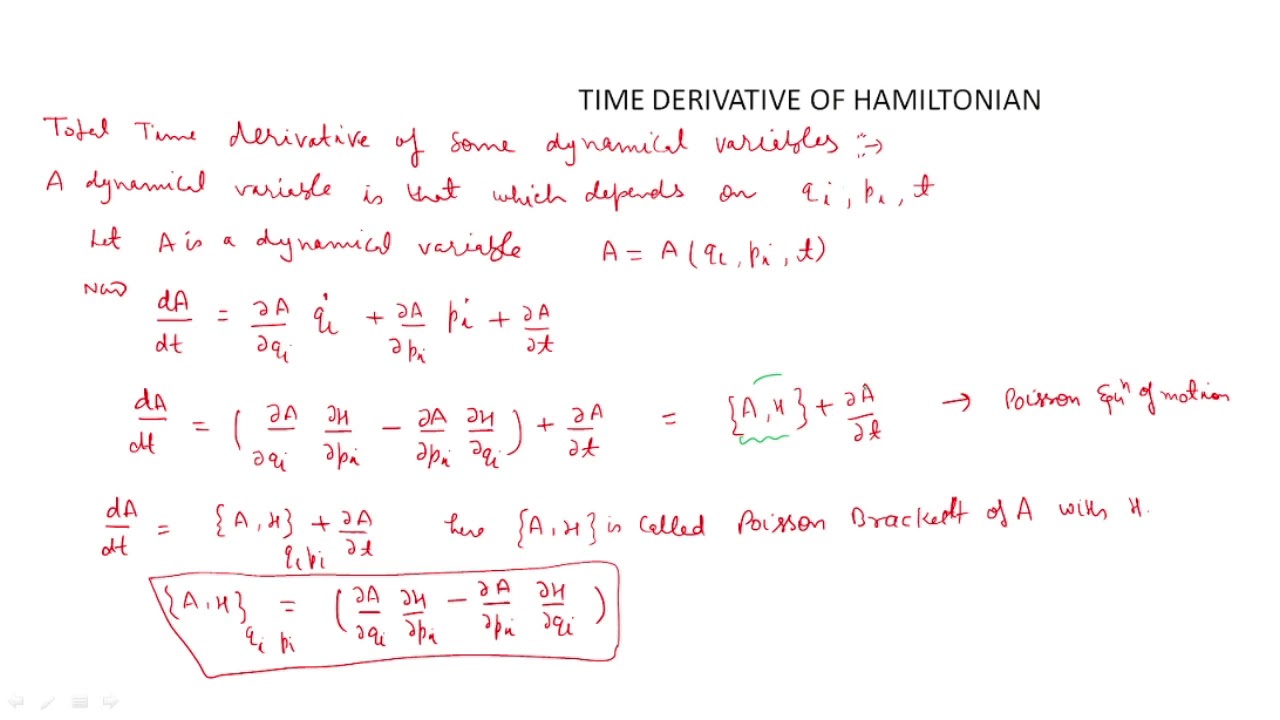 TIME DERIVATIVE OF HAMILTONIAN
Total Time derivative of some dynamical variables :→
A dynamical variable is that which depends on qᵢ, pᵢ, t
Let A is a dynamical variable A = A(qᵢ, pᵢ, t)
Now dA/dt = ∂A/∂qᵢ q̇ᵢ + ∂A/∂pᵢ ṗᵢ + ∂A/∂t
dA/dt = (∂A/∂qᵢ ∂H/∂pᵢ − ∂A/∂pᵢ ∂H/∂qᵢ) + ∂A/∂t = {A, H} + ∂A/∂t → Poisson Eqⁿ of motion
dA/dt = {A, H}qᵢ pᵢ + ∂A/∂t here {A, H} is called Poisson Bracket of A with H.
{A, H}qᵢ pᵢ = (∂A/∂qᵢ ∂H/∂pᵢ − ∂A/∂pᵢ ∂H/∂qᵢ)